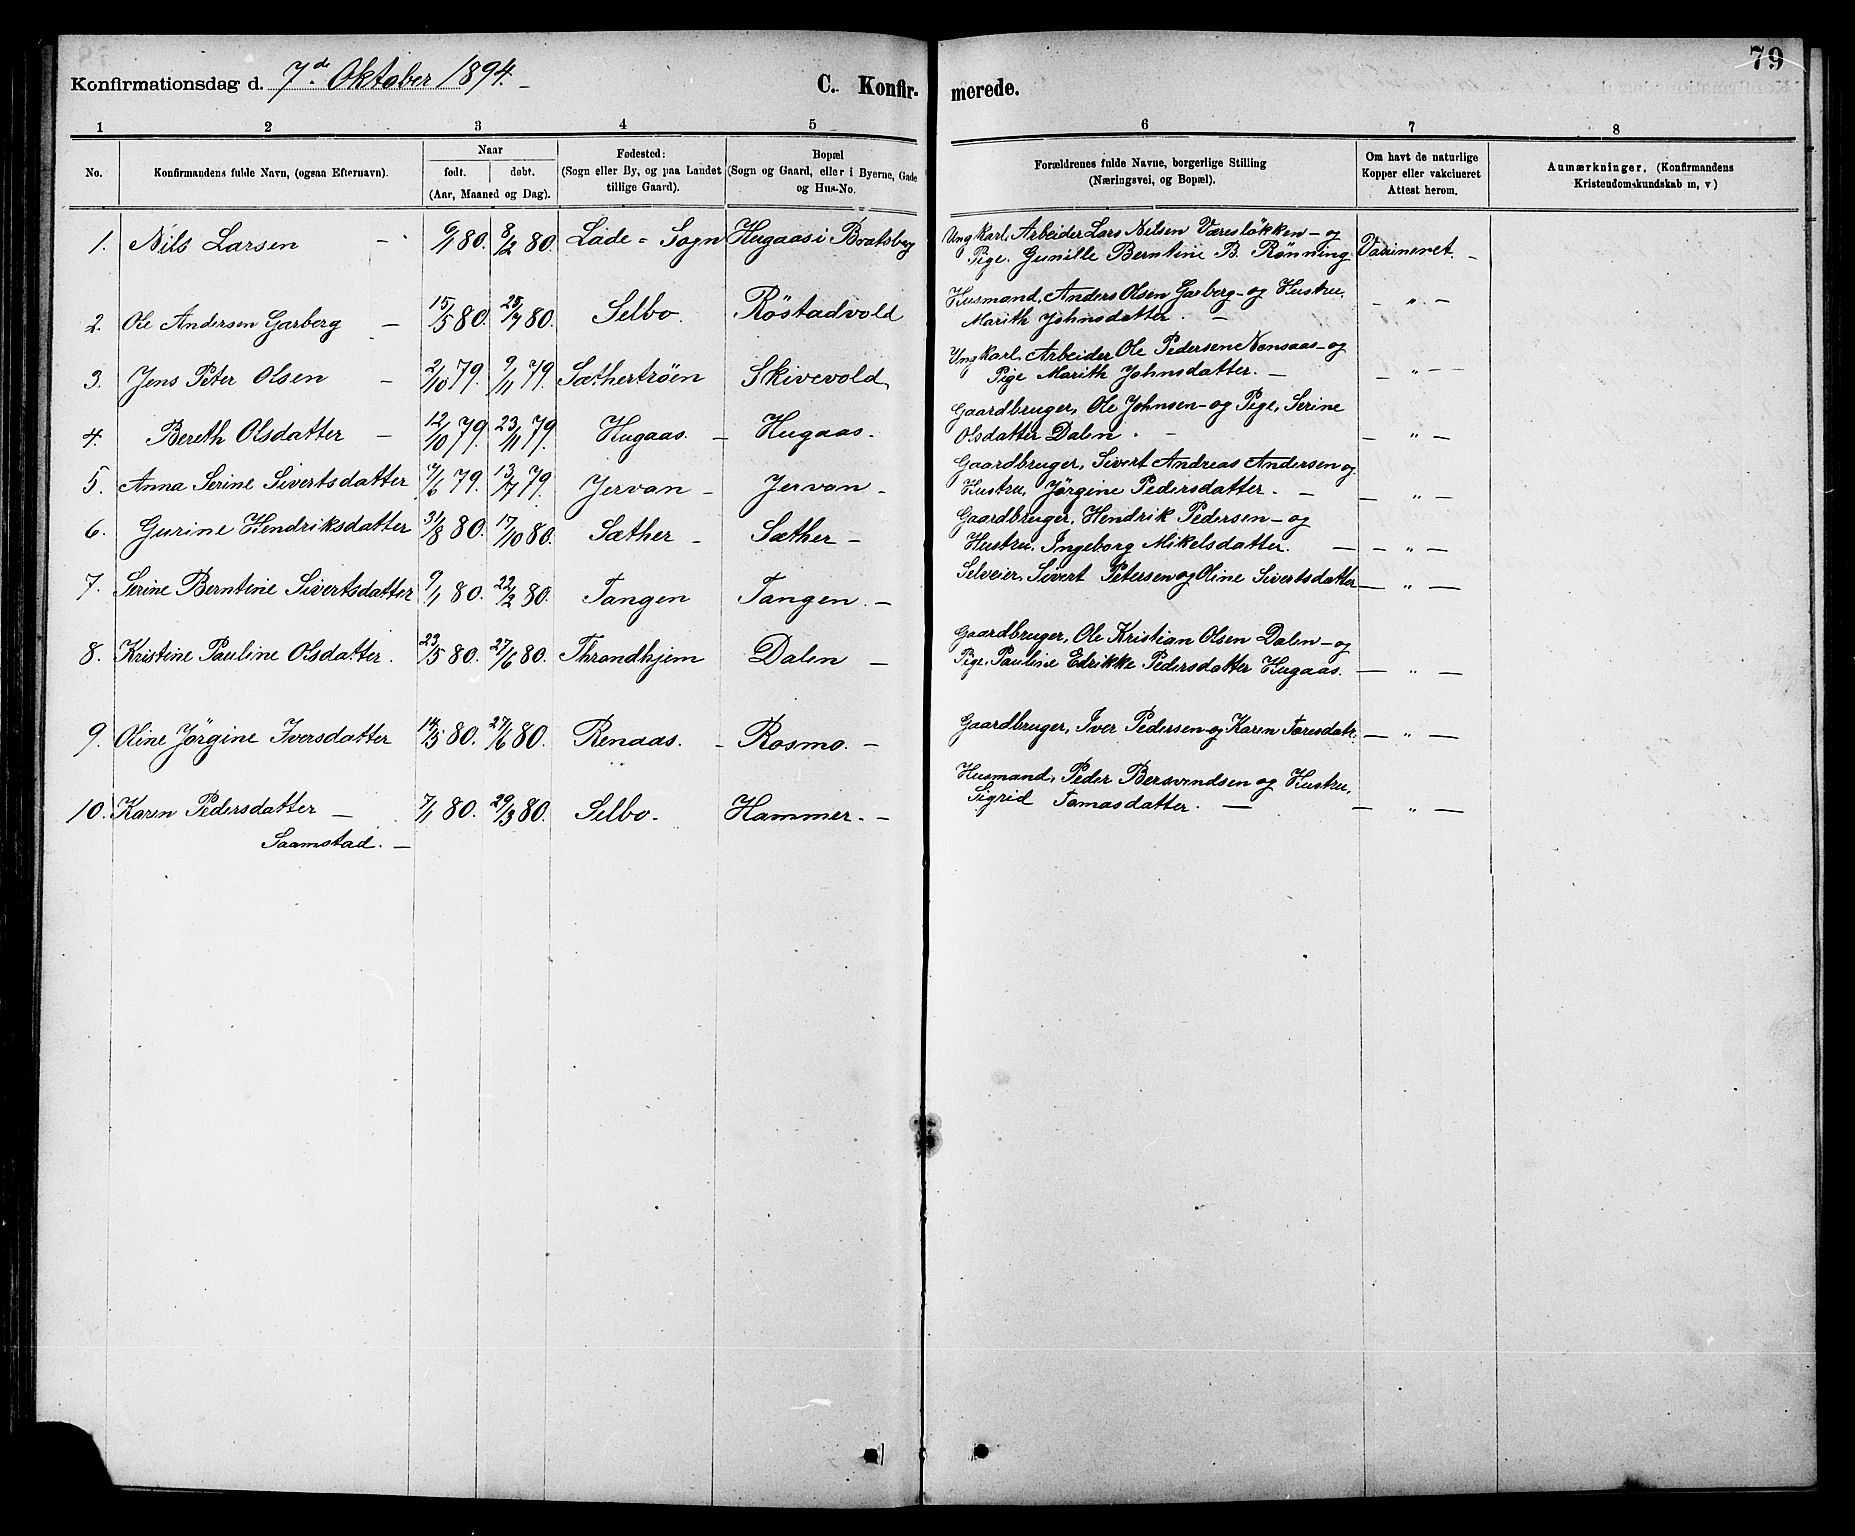 79
Konfirmationsdag d. 7de Oktober 1894. C. Konfir- merede.
1 2 3 4 5 6 7 8
No.
Konfirmandens fulde Navn, (ogsaa Efternavn).
Naar
født. døbt.
(Aar, Maaned og Dag).
Fødested:
(Sogn eller By, og paa Landet
tillige Gaard).
Bopæl
(Sogn og Gaard, eller i Byerne, Gade
og Hus-No.
Forældrenes fulde Navne, borgerlige Stilling
(Næringsvei, og Bopæl).
Om havt de naturlige
Kopper eller vakcineret
Attest herom.
Anmærkninger, (Konfirmandens
Kristendomskundskab m, v)
1. Nils Larsen - 6/1 80. 8/2 80. Lade = Sogn Hugaas i Bratsberg Ung karl, Arbeider Lars Nilsen Væresløkken - og
Pige. Gunille Berntine B. Rønning Vaccineret. -
2. Ole Andersen Garberg - 15/5 80. 25/7 80. Selbo. Röstadvold Husmand, Anders Olsen Garberg - og Hustru,
Marith Johnsdatter. - - " -
3. Jens Peter Olsen - 2/10 79. 9/11 79. Sæthertrøen Skivevold Ung karl, Arbeider Ole Pedersen Nonsaas - og
Pige Marith Johnsdatter. - - " -
4. Bereth Olsdatter - 12/10 79. 23/11 79. Hugaas. - Hugaas. Gaardbruger, Ole Johnsen - og Pige, Serine
Olsdatter Dalen. - - " -
5. Anna Serine Sivertsdatter 7/6 79. 13/7 79. Jervan - Jervan - Gaardbruger, Sivert Andreas Andersen og
Hustru, Jørgine Pedersdatter. - - " -
6. Gurine Hendriksdatter 31/8 80. 17/10 80. Sæther - Sæther - Gaardbruger, Hendrik Pedersen - og
Hustru, Ingeborg Mikelsdatter. - - " -
7. Serine Berntine Sivertsdatter 9/1 80. 22/2 80. Tangen Tangen. - Selveier, Sivert Petersen og Oline Sivertsdatter - " -
8. Kristine Pauline Olsdatter. 23/5 80. 27/6 80. Throndhjem Dalen - Gaardbruger, Ole Kristian Olsen Dalen - og
Pige, Pauline Edrikke Pedersdatter Hugaas. - " -
9. Oline Jørgine Iversdatter 14/5 80. 27/6 80. Renaas. - Rosmo. - Gaardbruger, Iver Pedersen - og Karen Toresdatr. - " -
10. Karen Pedersdatter - 7/1 80. 29/3 80. Selbo. Hammer. - Husmand, Peder Bersvendsen og Hustru,
Saamstad. - Sigrid Tamasdatter. - - " -